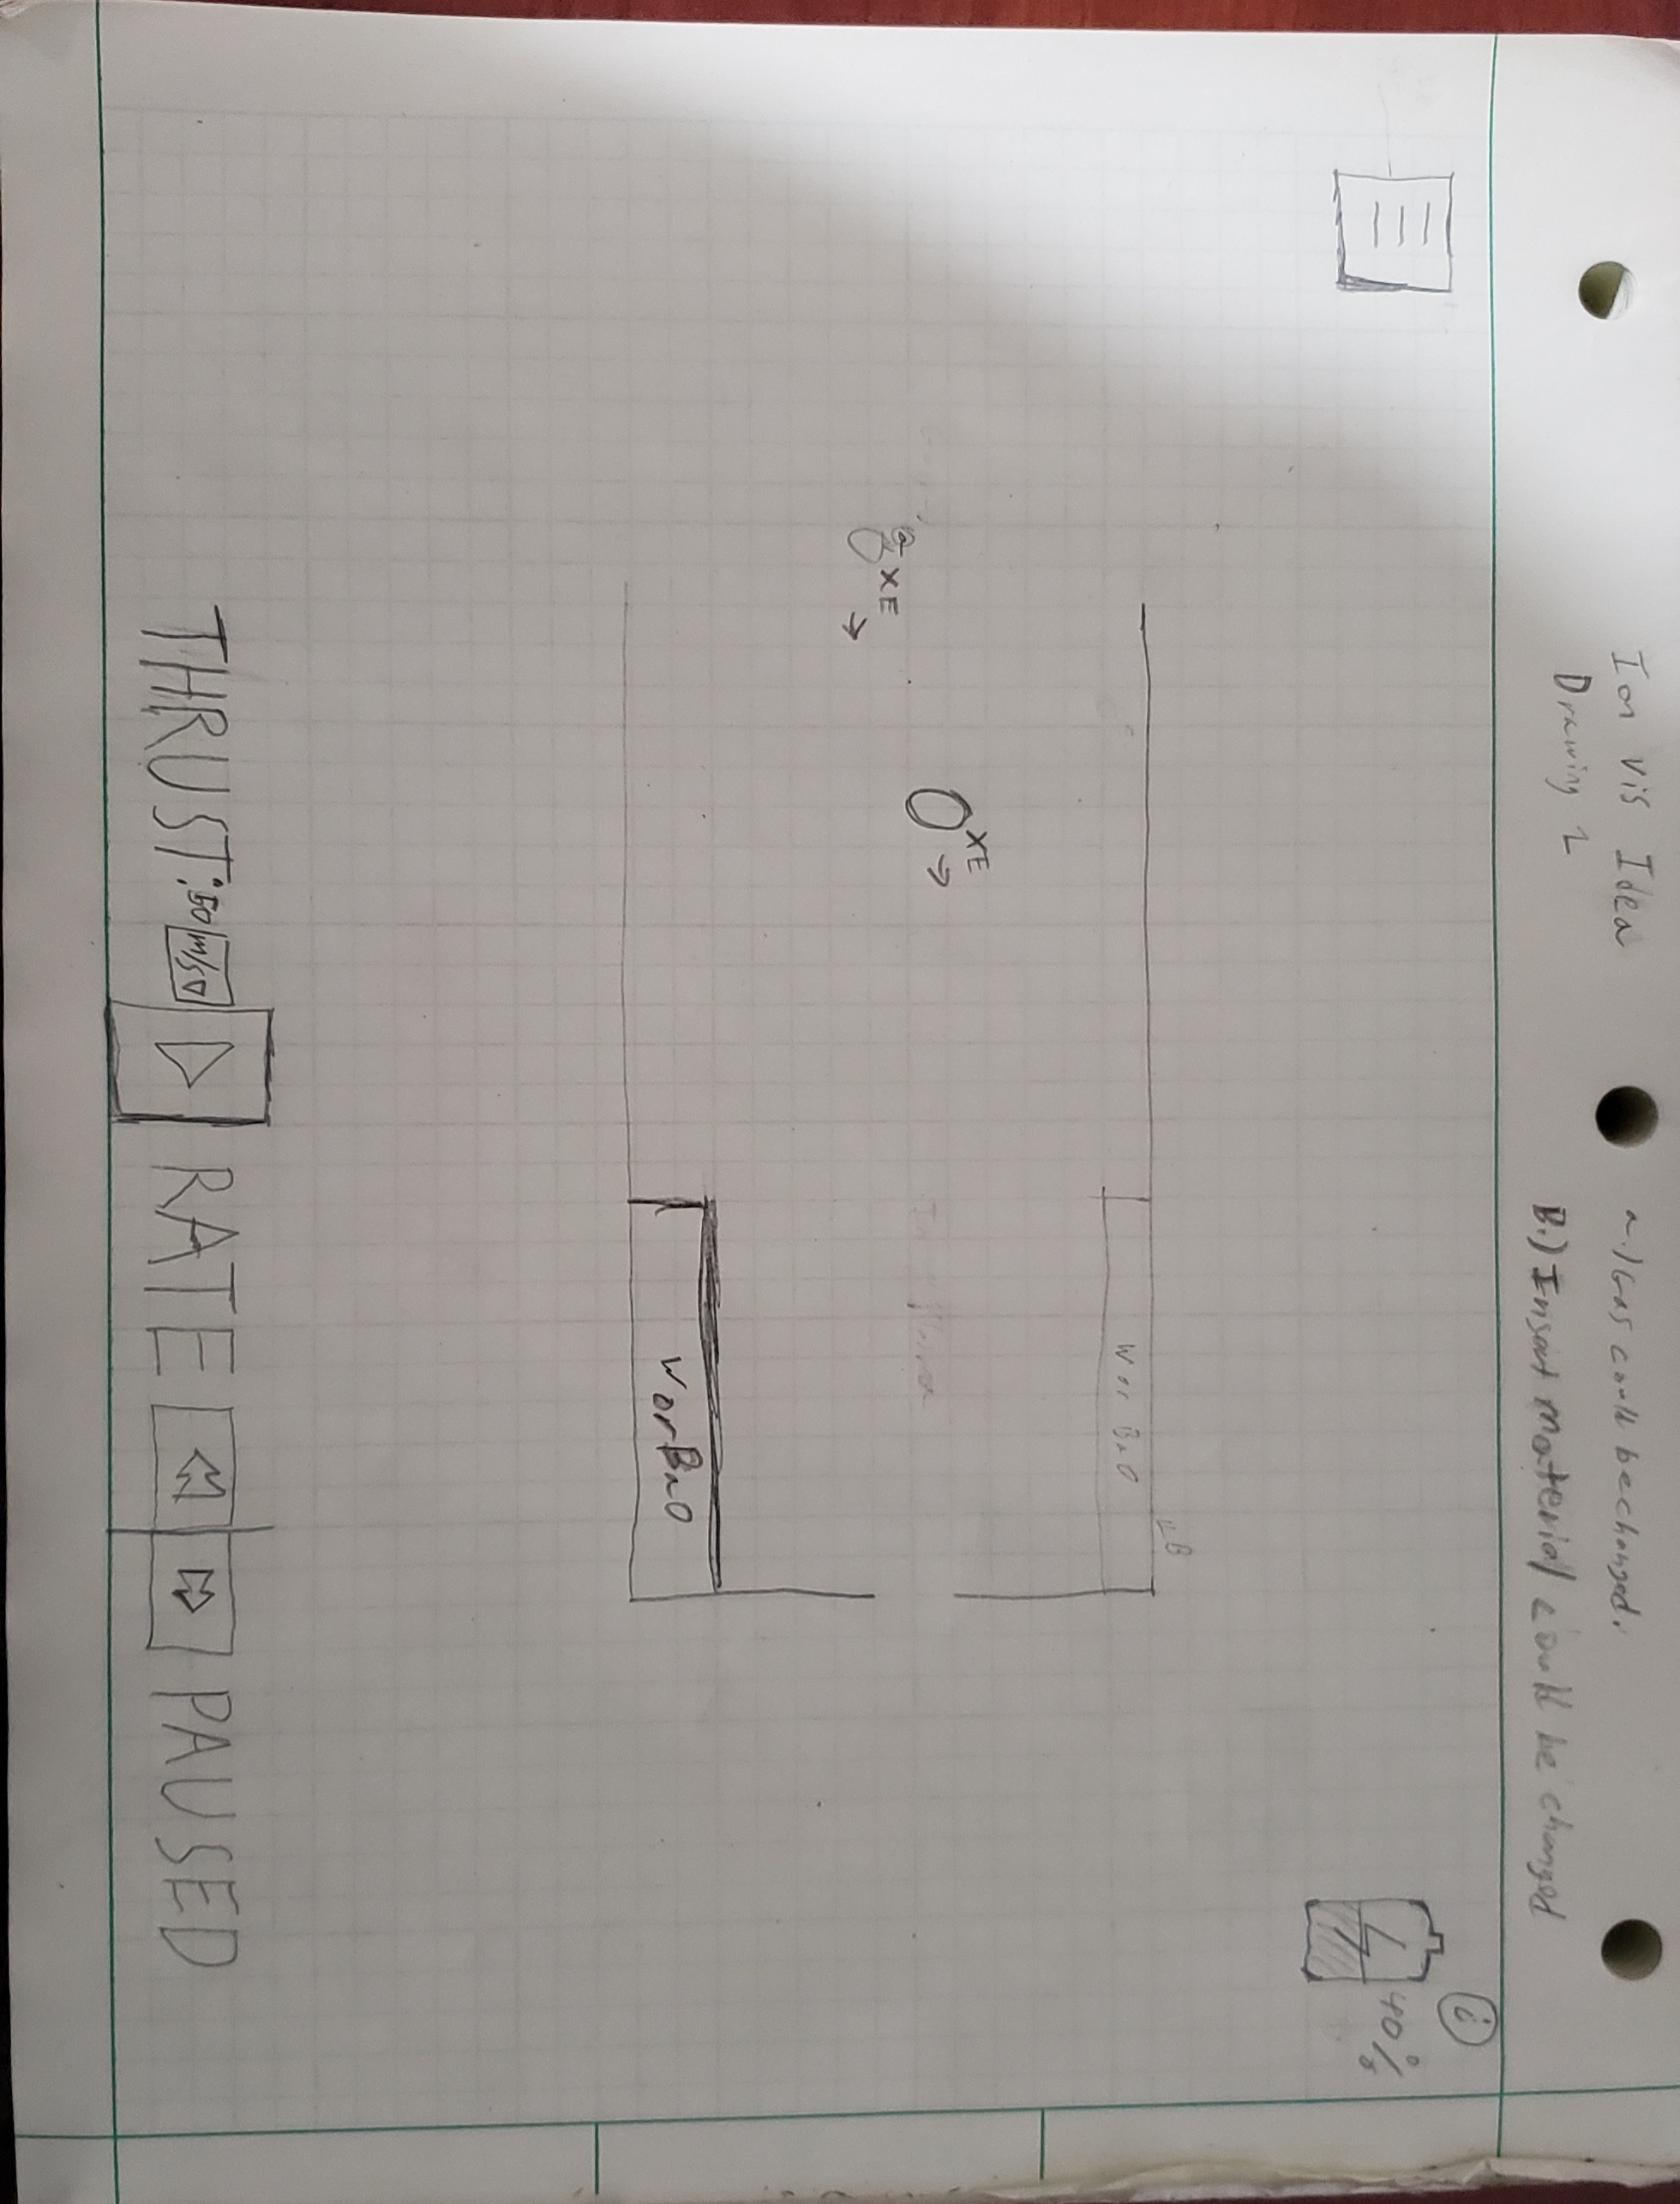 Ion vis Idea
Drawing 2
a.) Gas could be changed.
B.) Insert material could be changed
i
40%
XE
XE
W or BaO
W or BaO
THRUST: 50 m/s
RATE
PAUSED